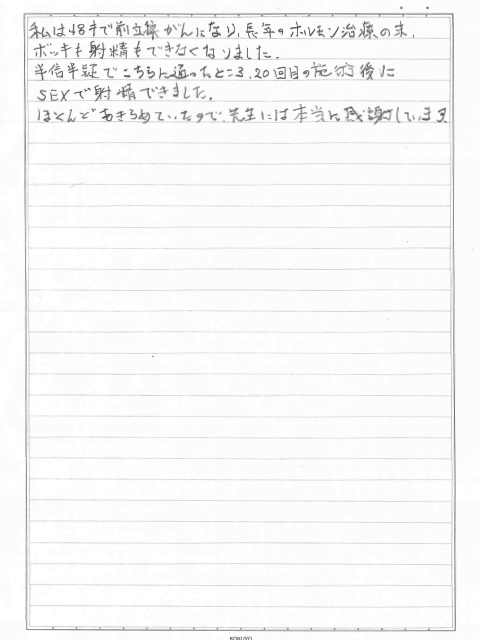 私は48才で前立腺がんになり、長年のホルモン治療の末、
ボッキも射精もできなくなりました。
半信半疑でこちらに通ったところ、20回目の施術後に
SEXで射精できました。
ほとんどあきらめていたので、先生には本当に感謝しています
KOKUYO